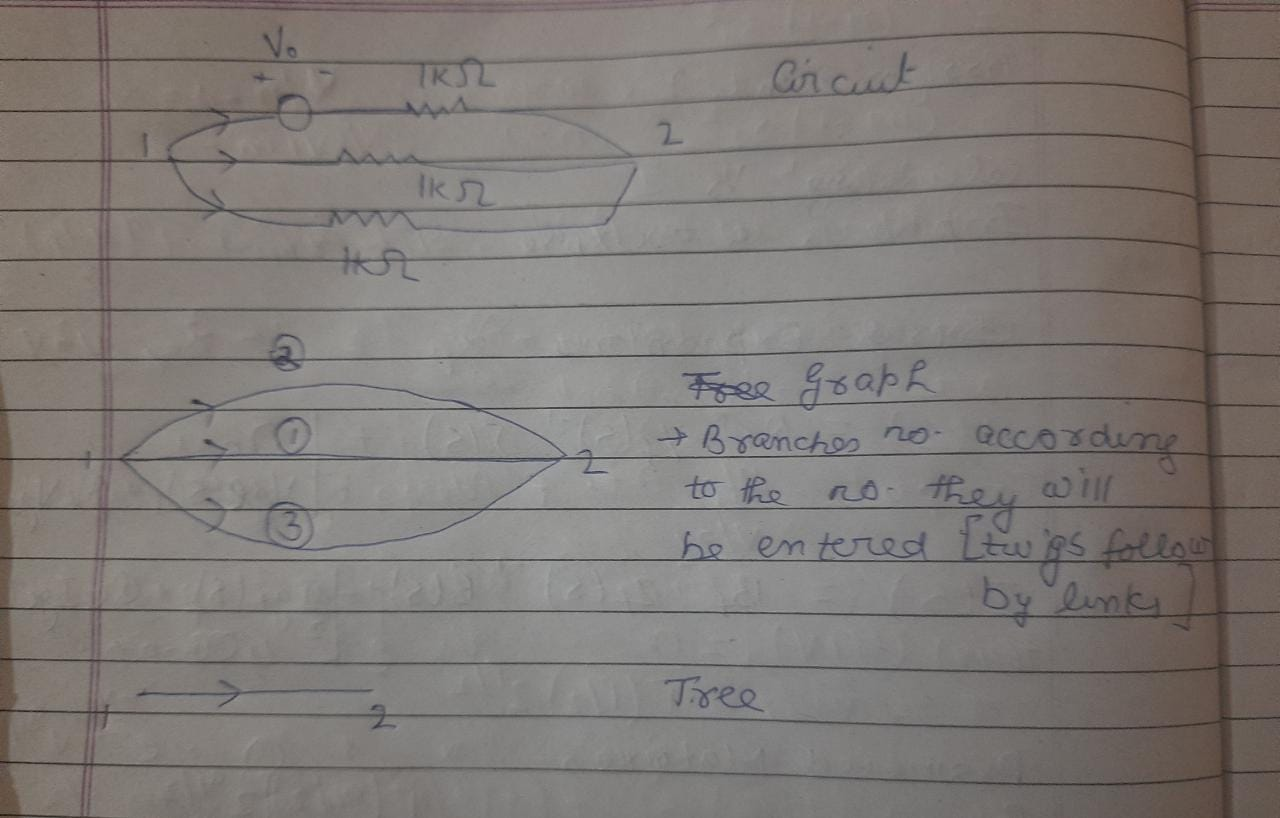 V₀
+ -
1kΩ
Circuit
1
2
1kΩ
1kΩ
②
Tree Graph
①
→ Branches no. according
1
2
to the no. they will
③
be entered [twigs follow
by links]
Tree
1
2